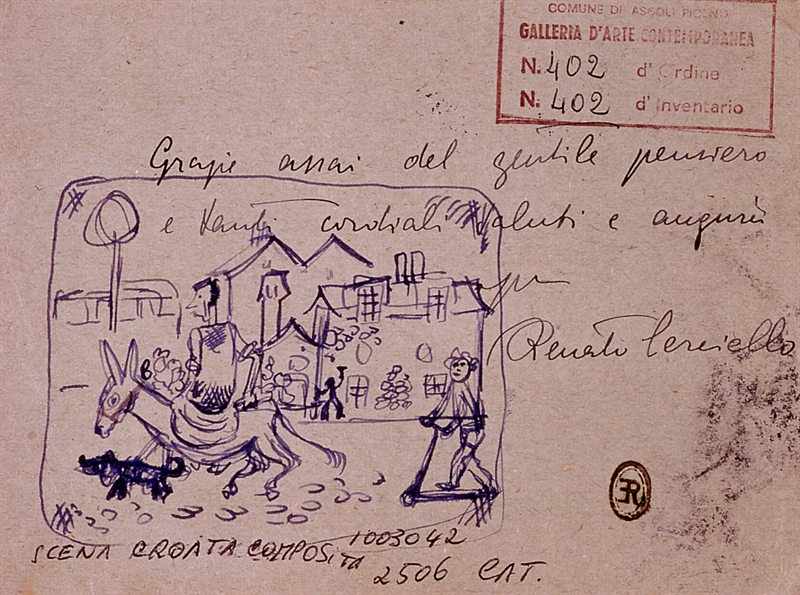 COMUNE DI ASCOLI PICENO
GALLERIA D'ARTE CONTEMPORANEA
N. 402 d'Ordine
N. 402 d'Inventario
Grazie assai del gentile pensiero
e tanti cordiali saluti e auguri
Renato
B
R
SCENA CROATA COMPOSITA 1003042
2506 CAT.